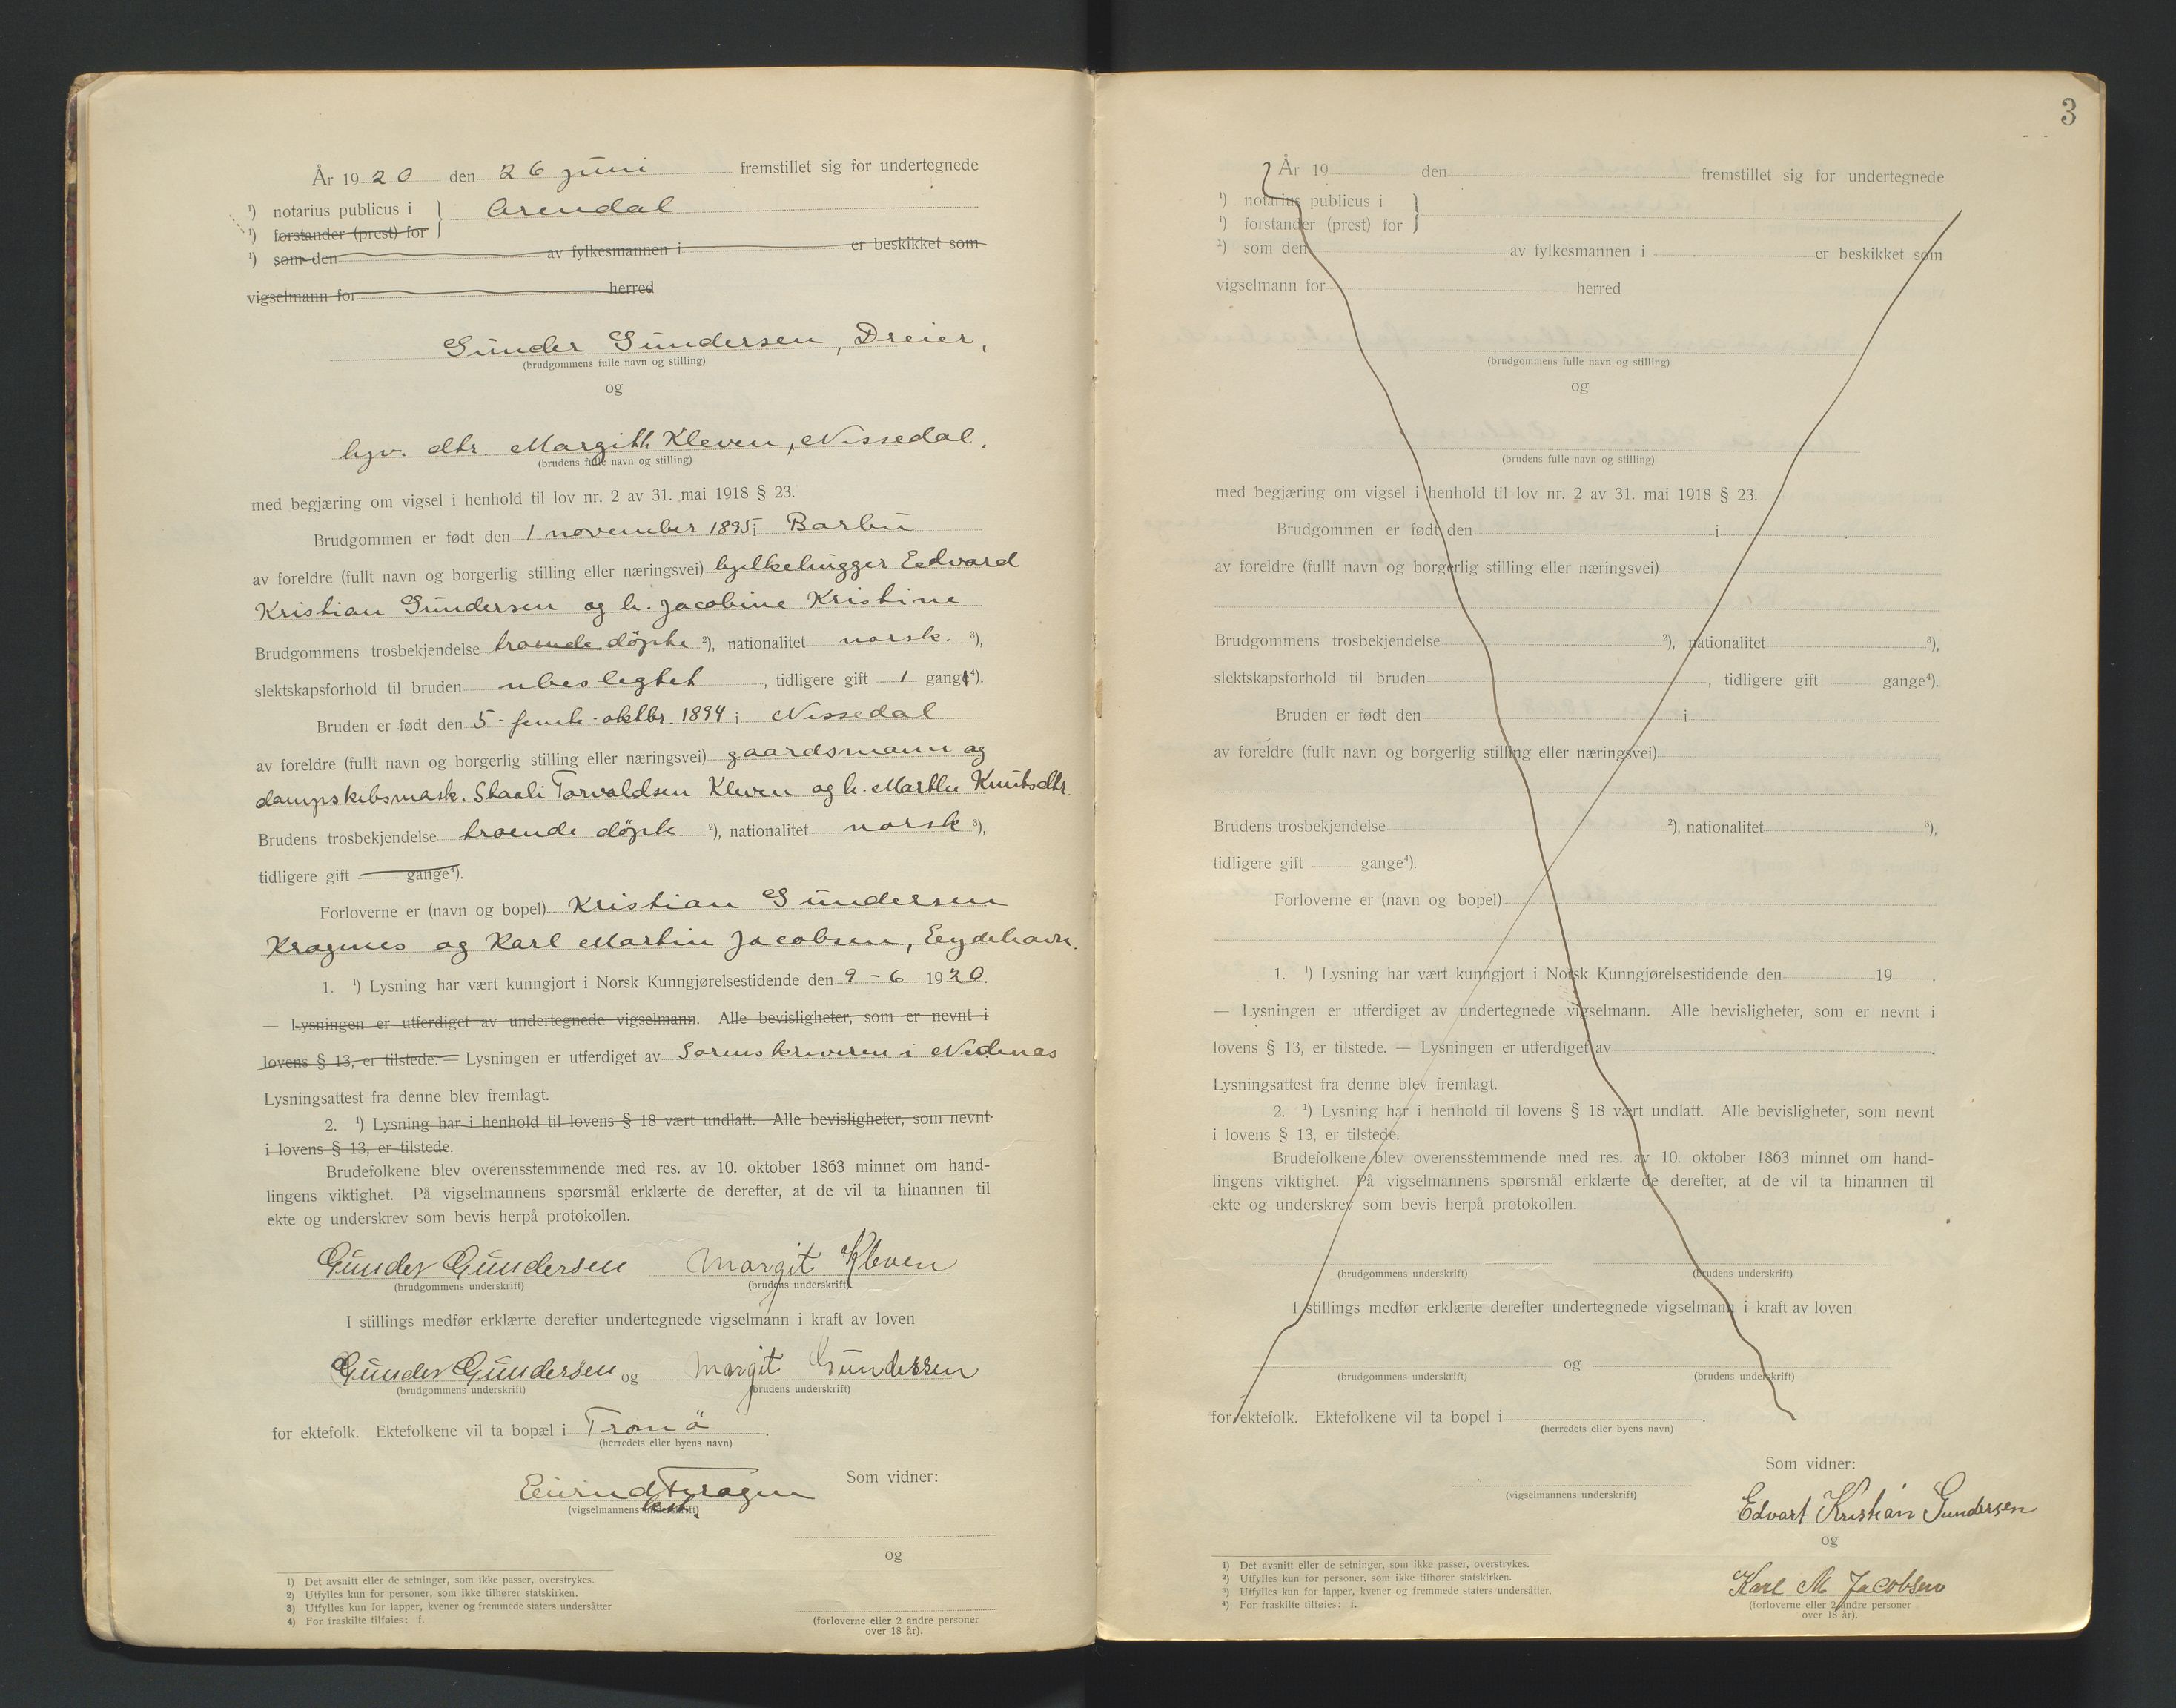 År 1920 den 26 juni fremstillet sig for undertegnede
¹) notarius publicus i Arendal
¹) forstander (prest) for
¹) som den av fylkesmannen i er beskikket som
vigselmann for herred
Gunder Gundersen, Dreier,
(brudgommens fulle navn og stilling)
og
hjv. dtr. Margith Kleven, Nissedal.
(brudens fulle navn og stilling)
med begjæring om vigsel i henhold til lov nr. 2 av 31. mai 1918 § 23.
Brudgommen er født den 1 november 1895 i Barbu
av foreldre (fullt navn og borgerlig stilling eller næringsvei) hjelkehugger Edvard
Kristian Gundersen og h. Jacobine Kristine
Brudgommens trosbekjendelse troende döpte ²), nationalitet norsk. ³),
slektskapsforhold til bruden ubeslegtet, tidligere gift 1 gang⁴).
Bruden er født den 5-femte-oktbr. 1894 i Nissedal
av foreldre (fullt navn og borgerlig stilling eller næringsvei) gaardsmann og
dampskibsmask. Staali Torvaldsen Kleven og h. Marthe Knutsdtr.
Brudens trosbekjendelse troende döpte ²), nationalitet norsk ³),
tidligere gift gange⁴).
Forloverne er (navn og bopel) Kristian Gundersen
Kragnes og Karl Martin Jacobsen, Eydehavn.
1. ¹) Lysning har vært kunngjort i Norsk Kunngjørelsestidende den 9-6 1920.
— Lysningen er utferdiget av undertegnede vigselmann. Alle bevisligheter, som er nevnt i
lovens § 13, er tilstede. — Lysningen er utferdiget av Sorenskriveren i Nedenæs
Lysningsattest fra denne blev fremlagt.
2. ¹) Lysning har i henhold til lovens § 18 vært undlatt. Alle bevisligheter, som nevnt
i lovens § 13, er tilstede.
Brudefolkene blev overensstemmende med res. av 10. oktober 1863 minnet om hand-
lingens viktighet. På vigselmannens spørsmål erklærte de derefter, at de vil ta hinannen til
ekte og underskrev som bevis herpå protokollen.
Gunder Gundersen Margit Kleven
(brudgommens underskrift) (brudens underskrift)
I stillings medfør erklærte derefter undertegnede vigselmann i kraft av loven
Gunder Gundersen og Margit Gundersen
(brudgommens underskrift) (brudens underskrift)
for ektefolk. Ektefolkene vil ta bopæl i Tromö.
(herredets eller byens navn)
Som vidner:
Eivind
(vigselmannens underskrift)
og
1) Det avsnitt eller de setninger, som ikke passer, overstrykes.
2) Utfylles kun for personer, som ikke tilhører statskirken.
3) Utfylles kun for lapper, kvener og fremmede staters undersåtter
4) For fraskilte tilføies: f.
(forloverne eller 2 andre personer
over 18 år).
3
År 19 den fremstillet sig for undertegnede
¹) notarius publicus i
¹) forstander (prest) for
¹) som den av fylkesmannen i er beskikket som
vigselmann for herred
(brudgommens fulle navn og stilling)
og
(brudens fulle navn og stilling)
med begjæring om vigsel i henhold til lov nr. 2 av 31. mai 1918 § 23.
Brudgommen er født den i
av foreldre (fullt navn og borgerlig stilling eller næringsvei)
Brudgommens trosbekjendelse ²), nationalitet ³),
slektskapsforhold til bruden, tidligere gift gange⁴).
Bruden er født den i
av foreldre (fullt navn og borgerlig stilling eller næringsvei)
Brudens trosbekjendelse ²), nationalitet ³),
tidligere gift gange⁴).
Forloverne er (navn og bopel)
1. ¹) Lysning har vært kunngjort i Norsk Kunngjørelsestidende den 19 .
— Lysningen er utferdiget av undertegnede vigselmann. Alle bevisligheter, som er nevnt i
lovens § 13, er tilstede. — Lysningen er utferdiget av .
Lysningsattest fra denne blev fremlagt.
2. ¹) Lysning har i henhold til lovens § 18 vært undlatt. Alle bevisligheter, som nevnt
i lovens § 13, er tilstede.
Brudefolkene blev overensstemmende med res. av 10. oktober 1863 minnet om hand-
lingens viktighet. På vigselmannens spørsmål erklærte de derefter, at de vil ta hinannen til
ekte og underskrev som bevis herpå protokollen.
(brudgommens underskrift) (brudens underskrift)
I stillings medfør erklærte derefter undertegnede vigselmann i kraft av loven
og
(brudgommens underskrift) (brudens underskrift)
for ektefolk. Ektefolkene vil ta bopel i .
(herredets eller byens navn)
Som vidner:
(vigselmannens underskrift)
Edvart Kristian Gundersen
og
Karl M Jacobsen
(forloverne eller 2 andre personer
over 18 år).
1) Det avsnitt eller de setninger, som ikke passer, overstrykes.
2) Utfylles kun for personer, som ikke tilhører statskirken.
3) Utfylles kun for lapper, kvener og fremmede staters undersåtter.
4) For fraskilte tilføies: f.